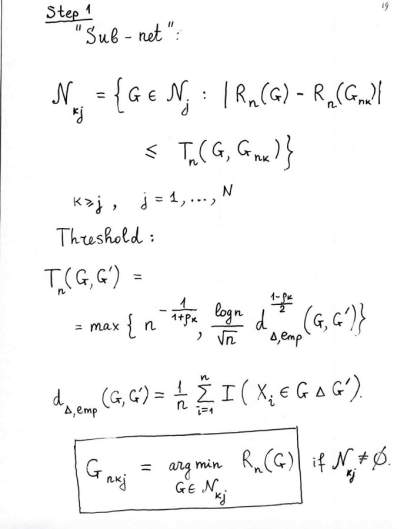 19
Step 1
"Sub-net":
𝒩_{κj} = { G ∈ 𝒩_j : | R_n(G) - R_n(G_{nκ}) |
≤ T_n(G, G_{nκ}) }
κ ≥ j , j = 1, ..., N
Threshold :
T_n(G, G') =
= max { n^{-1/(1+ρ_κ)}, (log n/√n) d_{Δ,emp}^{(1-ρ_κ)/2} (G, G') }
d_{Δ,emp}(G, G') = (1/n) Σ_{i=1}^{n} I ( X_i ∈ G Δ G' ).
G_{nκj} = argmin_{G ∈ 𝒩_{κj}} R_n(G) if 𝒩_{κj} ≠ ∅.